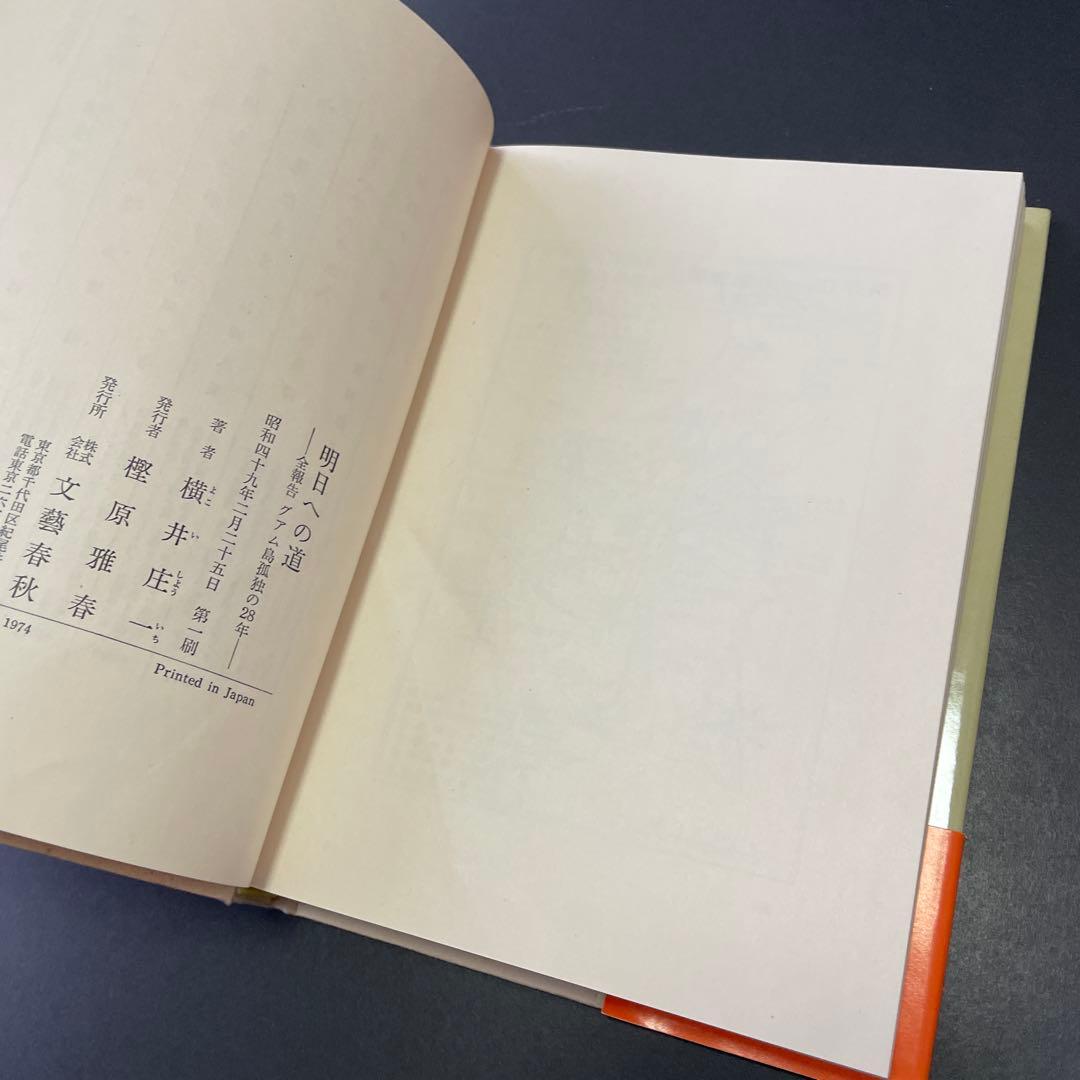 明日への道
――全報告 グアム島孤独の28年――
昭和四十九年二月二十五日 第一刷
著者 横井庄一
よこ い しよう いち
発行者 樫原雅春
発行所 株式会社 文藝春秋
東京都千代田区紀尾
電話東京二六
1974
Printed in Japan